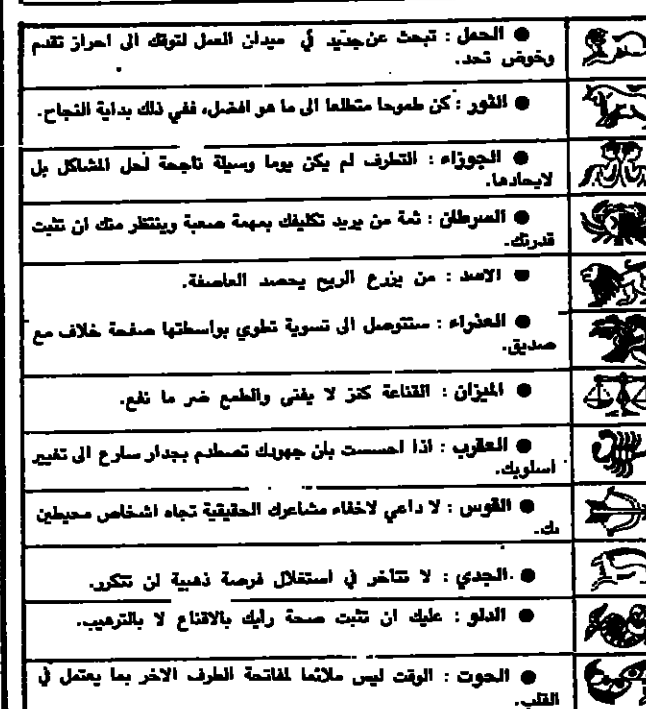 ● الحمل : تبحث عن جديد في ميدان العمل لتوقك الى احراز تقدم
وخوض تحد.
● الثور : كن طموحا متطلعا الى ما هو افضل، ففي ذلك بداية النجاح.
● الجوزاء : التطرف لم يكن يوما وسيلة ناجحة لحل المشاكل بل
لايجادها.
● السرطان : ثمة من يريد تكليفك بمهمة صعبة وينتظر منك ان تثبت
قدرتك.
● الاسد : من يزرع الريح يحصد العاصفة.
● العذراء : ستتوصل الى تسوية تطوي بواسطتها صفحة خلاف مع
صديق.
● الميزان : القناعة كنز لا يفنى والطمع ضر ما نفع.
● العقرب : اذا احسست بان جهودك تصطدم بجدار سارع الى تغيير
اسلوبك.
● القوس : لا داعي لاخفاء مشاعرك الحقيقية تجاه اشخاص محيطين
بك.
● الجدي : لا تتاخر في استغلال فرصة ذهبية لن تتكرر.
● الدلو : عليك ان تثبت صحة رايك بالاقناع لا بالترهيب.
● الحوت : الوقت ليس ملائما لمفاتحة الطرف الاخر بما يعتمل في
القلب.